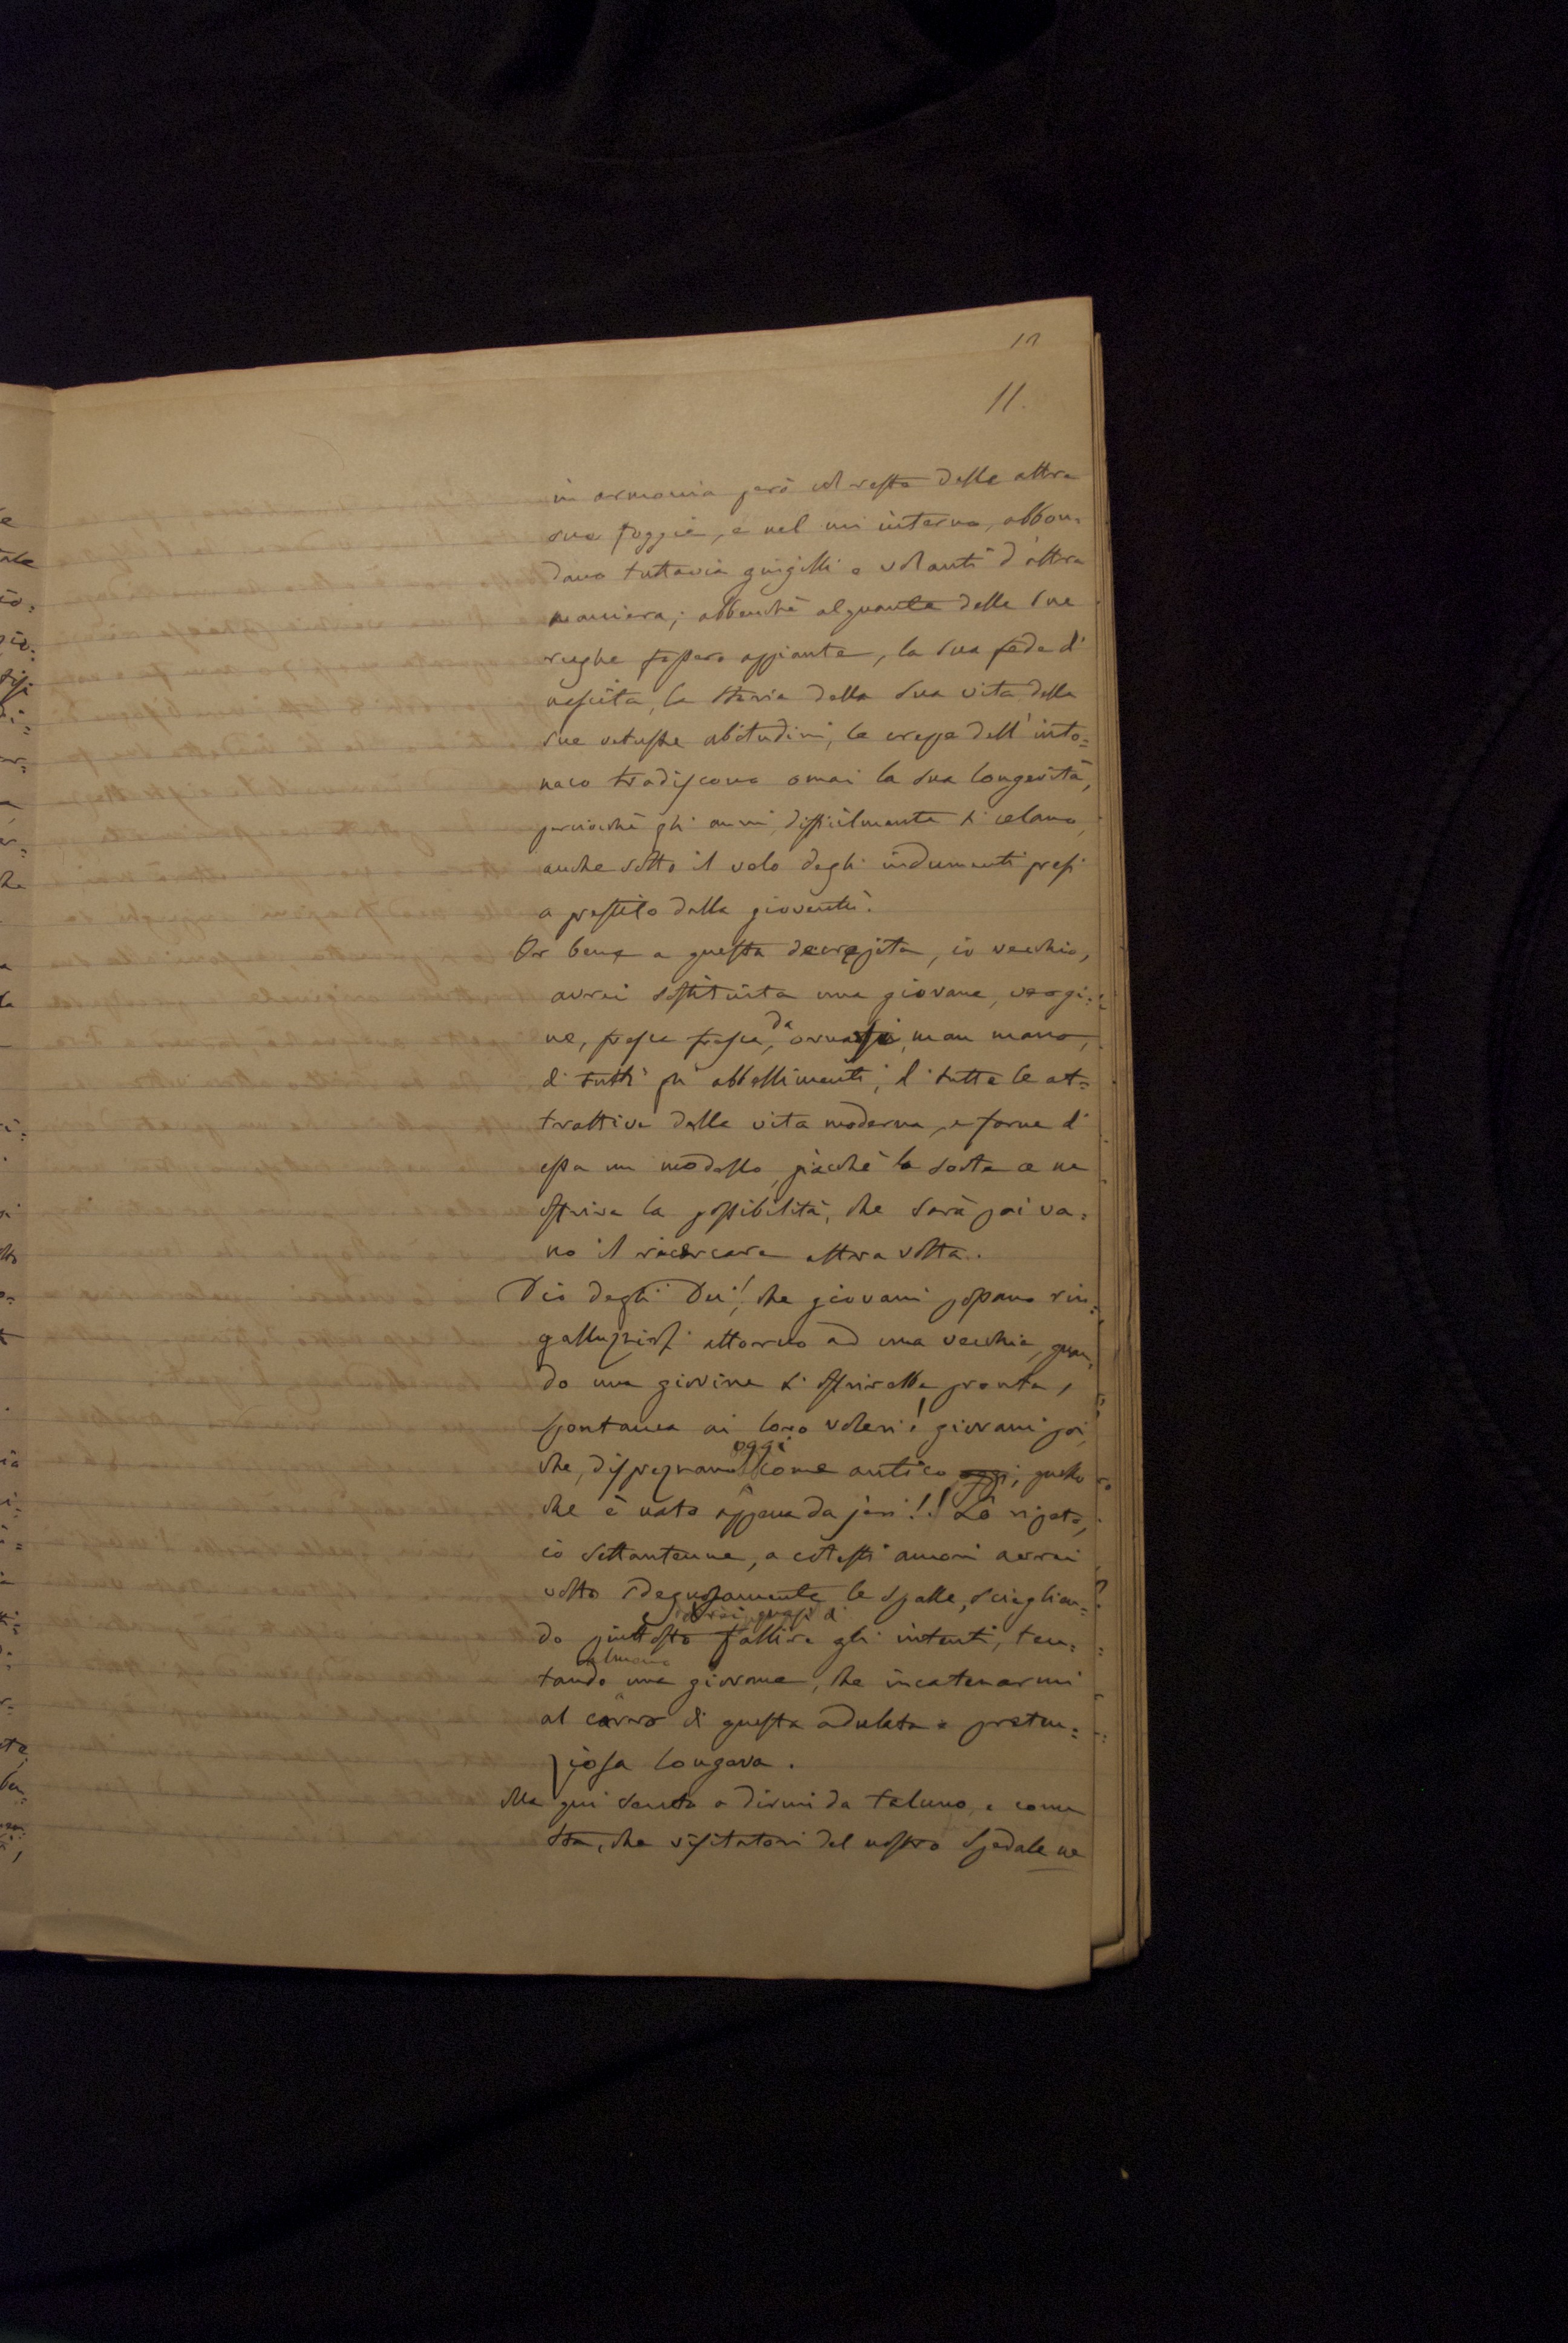 11.
in armonia però col resto delle altre
sue foggie, e nel mi interno, abbon-
dano tuttavia gingilli e volanti d'altra
maniera; abbenchè alquante delle sue
rughe fossero appiante, la sua fede di
nascita, la storia della sua vita della
sue vetuste abitudini, le crepe dell'into=
naco tradiscono omai la sua longevità,
perciocchè gli anni difficilmente si celano
anche sotto il velo degli indumenti presi
a prestito dalla gioventù.
Or bene a questa decrepita, io vecchio,
avrei sostituita una giovane, vergi=
ne, fresca fresca, da ornarsi, man mano,
di tutti gli abbellimenti, di tutte le at=
trattive della vita moderna, e farne di
essa un modello, giacchè la sorte ce ne
offriva la possibilità, che sarà poi va=
no il ricercare altra volta.
Dio degli Dei! che giovani possano rin=
galluzzirsi attorno ad una vecchia, quan=
do una giovine si offrirebbe pronta,
spontanea ai loro voleri! giovani poi
che, disprezzano oggi come antico oggi, quello
che è nato appena da jeri!! Lo ripeto,
io settantenne, a cotesti amori avrei
volto sdegnosamente le spalle, sceglien=
do piuttosto fallire gli intenti, ten=
tando una giovane, che incatenarmi
al carro di questa adulata e preten=
ziosa longeva.
Ma qui sento a dirmi da taluno, e come
sta, che visitatori del nostro Spedale ne